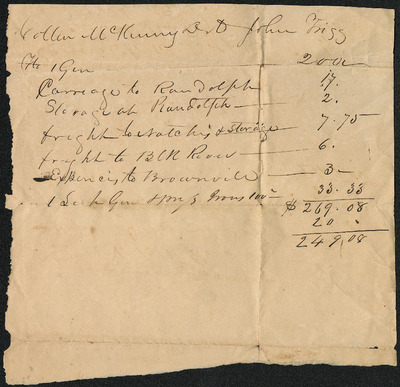 Collin McKinney Dr to John Trigg
To 1 Gin 200
Carriage to Randolph 17.
Storage at Randolph 2.
freight to Natchis & storige 7.75
freight to Blk River 6.
Expencis to Brownvill 3
1 Gin 33.33
$ 269.08
20
249.08